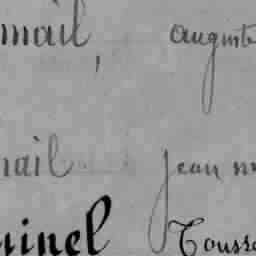 mail, auguste
mail jean m
uinel Touss